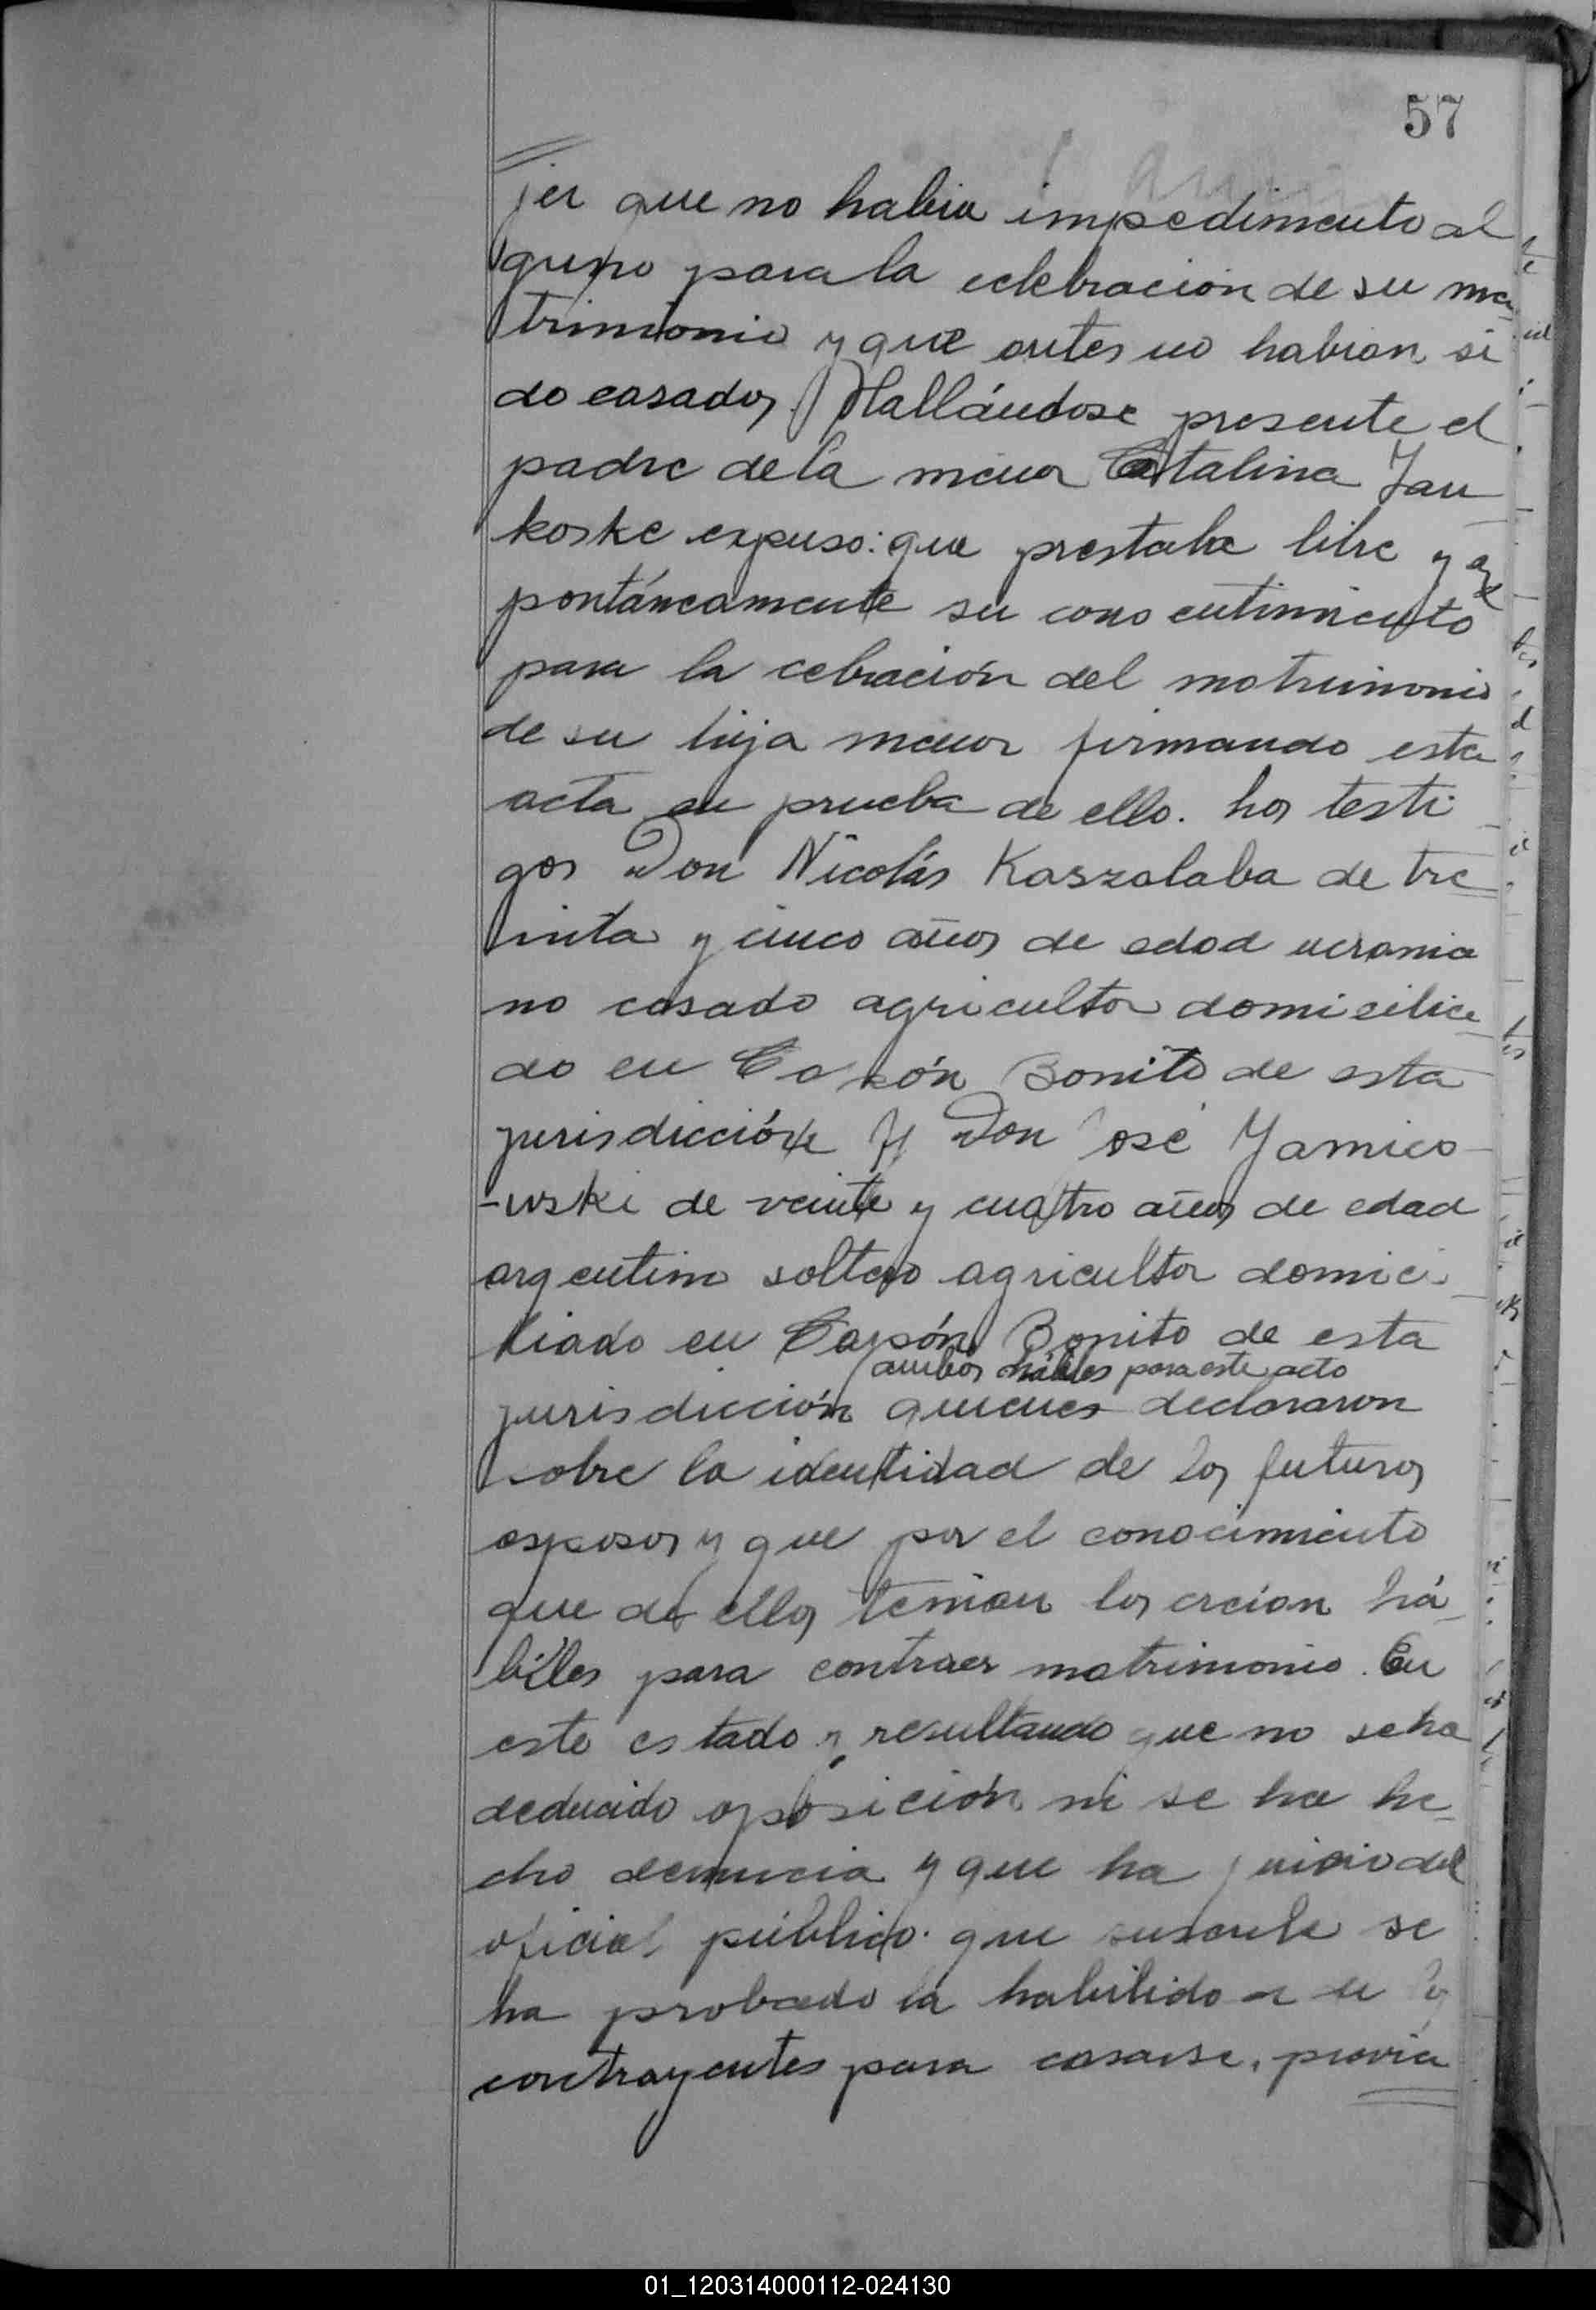 57
jer que no habia impedimento al
guno para la celebracion de su ma
trimonio y que antes no habian si
do casados. Hallándose presente el
padre de la menor Catalina Jan
koske expuso: que prestaba libre y es
pontáneamente su cons entimiento
para la cebración del matrimonio
de su hija menor firmando esta
acta en prueba de ello. Los testi
gos Don Nicolás Kaszalaba de tre
inta y cinco años de edad ucrania
no casado agricultor domicilia
do en Capón Bonito de esta
jurisdicción y Don José Yamico
-wski de veinte y cuatro años de edad
argentino soltero agricultor domici
liado en Capón Bonito de esta
ambos hábiles para este acto
jurisdicción quienes declararon
sobre la identidad de los futuros
esposos y que por el conocimiento
que de ellos tenian los creian há
biles para contraer matrimonio. En
este estado y resultando que no se ha
deducido oposición ni se ha he
cho denuncia y que ha juicio del
oficial público que suscribe se
ha probado la habilidad de los
contrayentes para casarse, previa
01_120314000112-024130